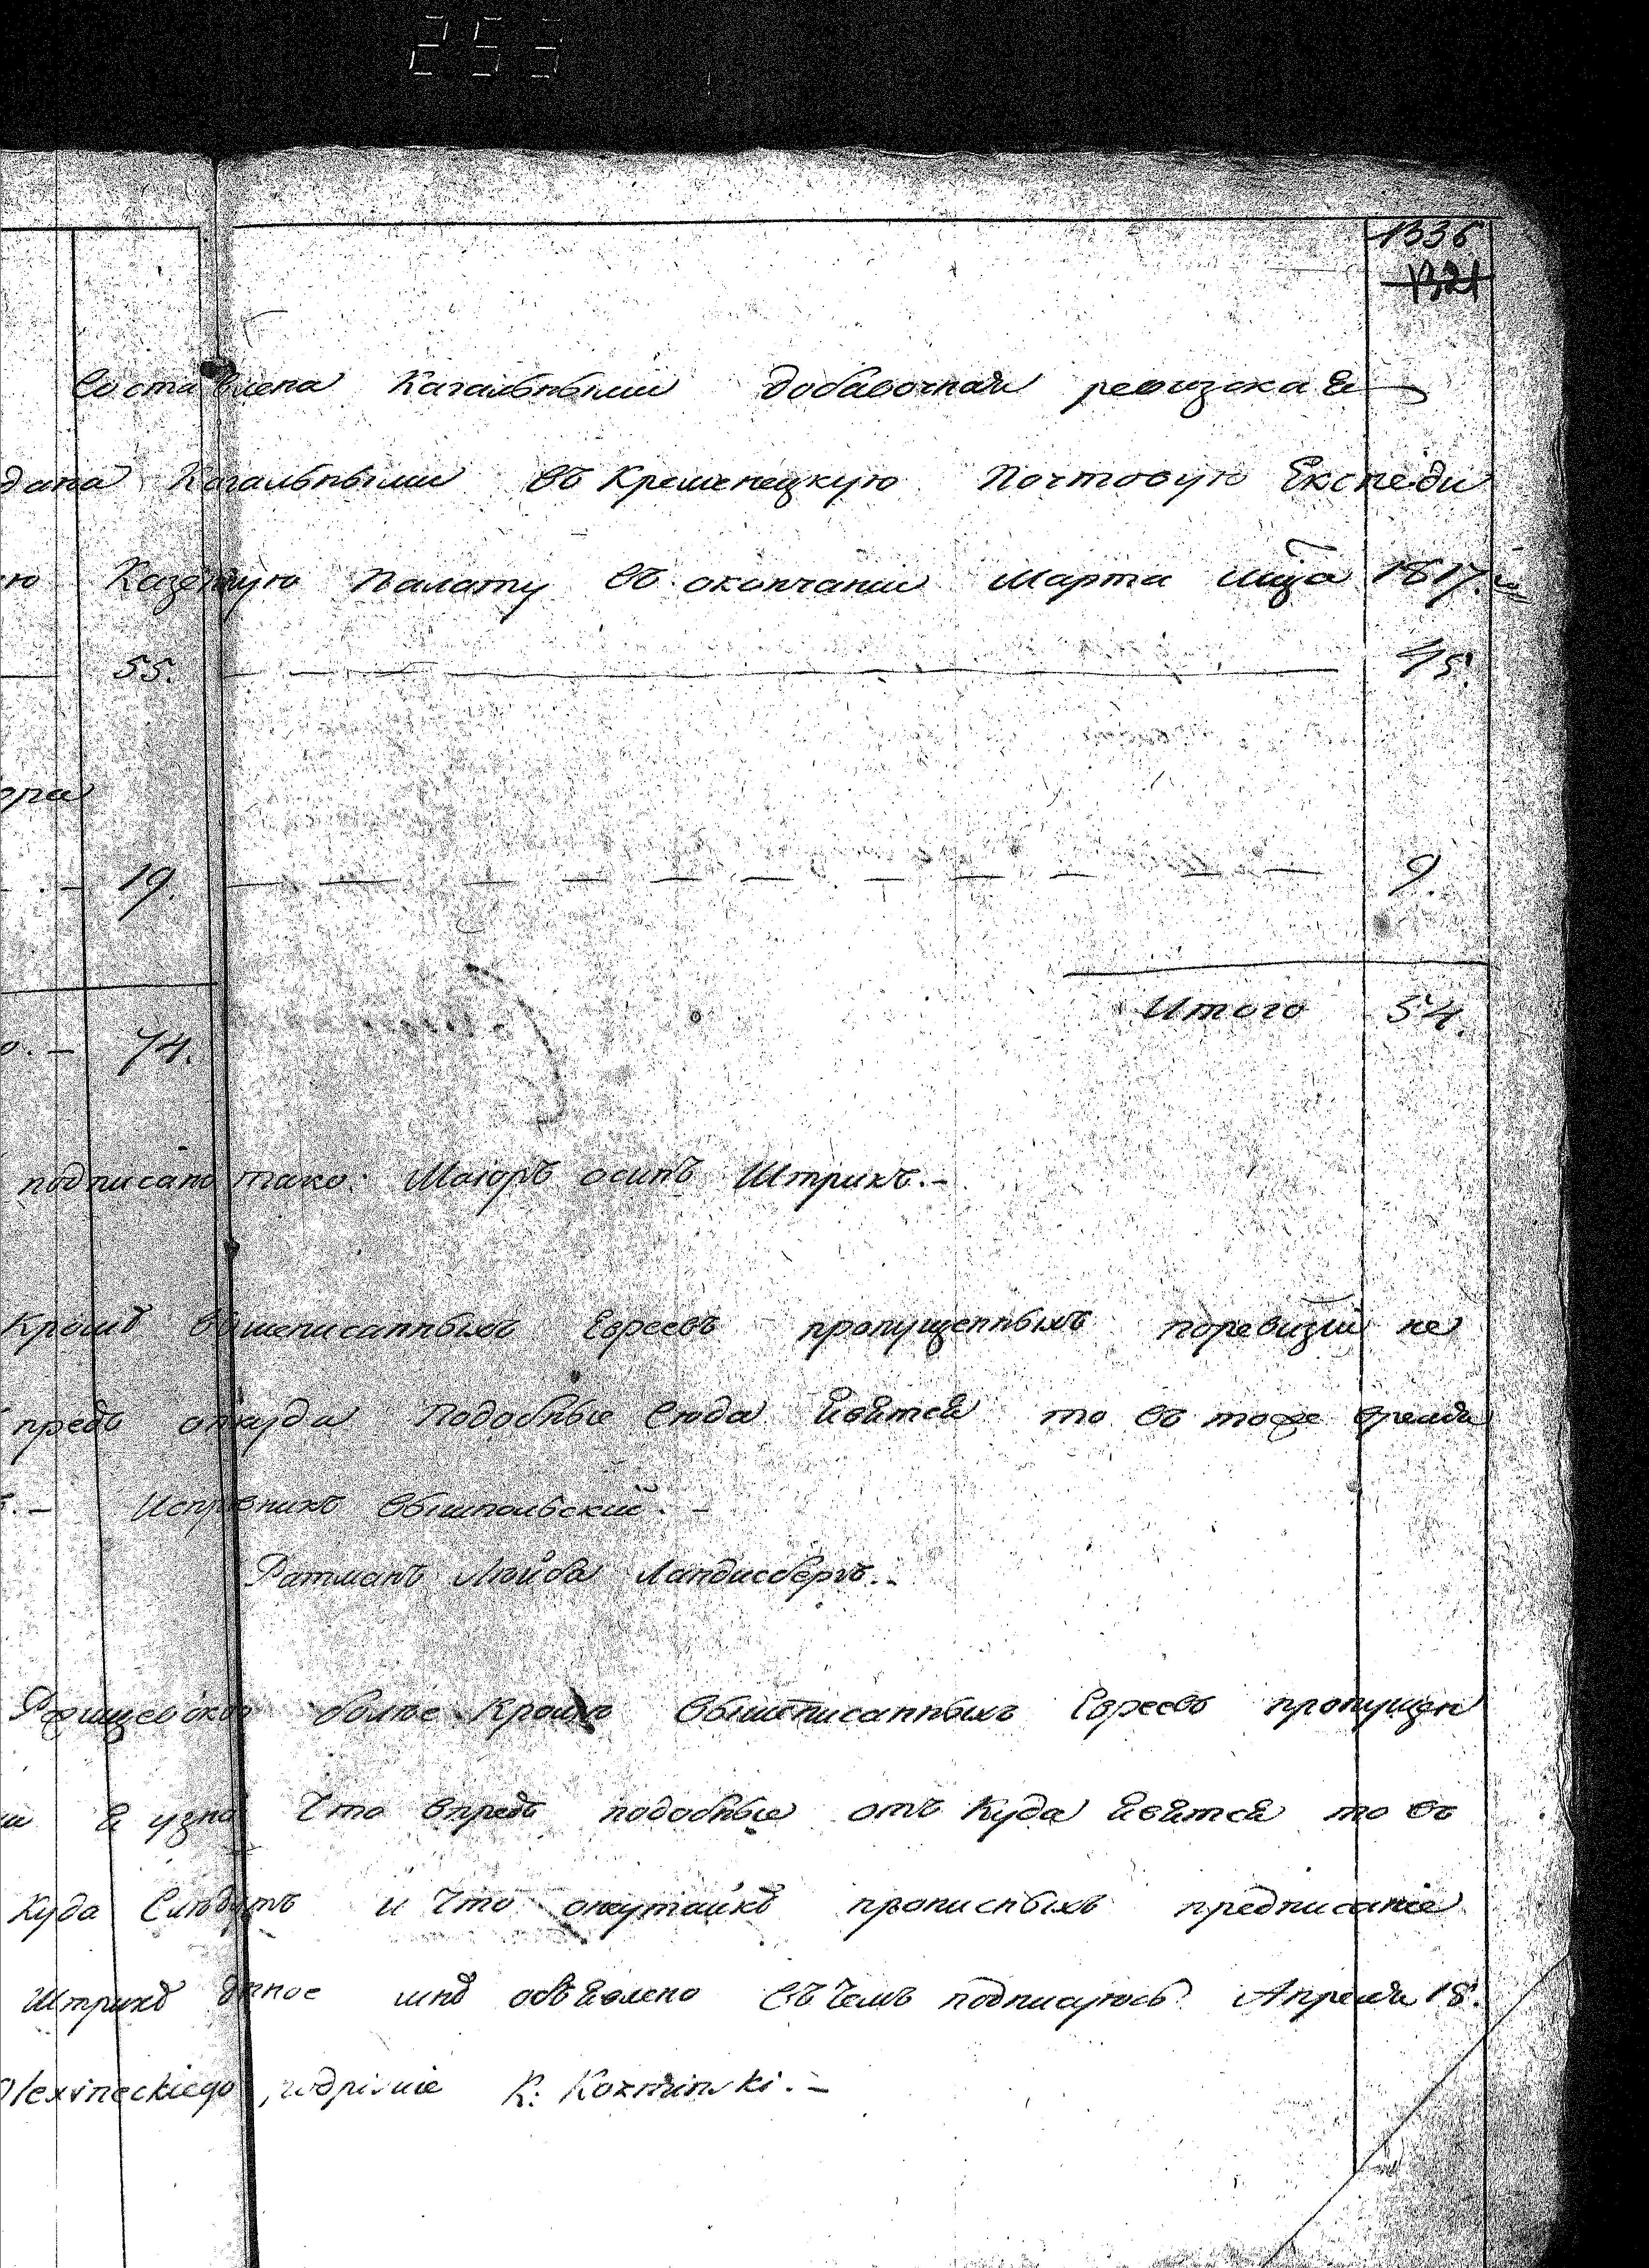 253
1336
1321
Составлена Кагальными добавочная ревизская
дана Кагальными въ Кременецкую Почтовую Експеди
ю Казенную Палату въ окончании Марта мца 1817.го
55. 45.
ора
19. 9.
Итого 54.
о. — 74.
подписано тако: Маиоръ осипъ Штрихъ. —
Кромѣ вышеписанныхъ Евреевъ пропущенныхъ поревизии не
предь откуда Подобные Сюда явятся то въ тоже время
Исправникъ Вышпольский. —
Ратманъ Лейба Ландисбергъ. —
болѣе Кромѣ вышеписанныхъ Евреевъ пропущен
и я узнаю Что впредь подобные отъ Куда явятся то въ
Куда Слѣдуетъ и Что прописныхъ предписание
Штрихъ данное мнѣ объявлено въ чемъ подписуюсь Апреля 18.
Olexineckiego, podpisuie K: Kozminski. —